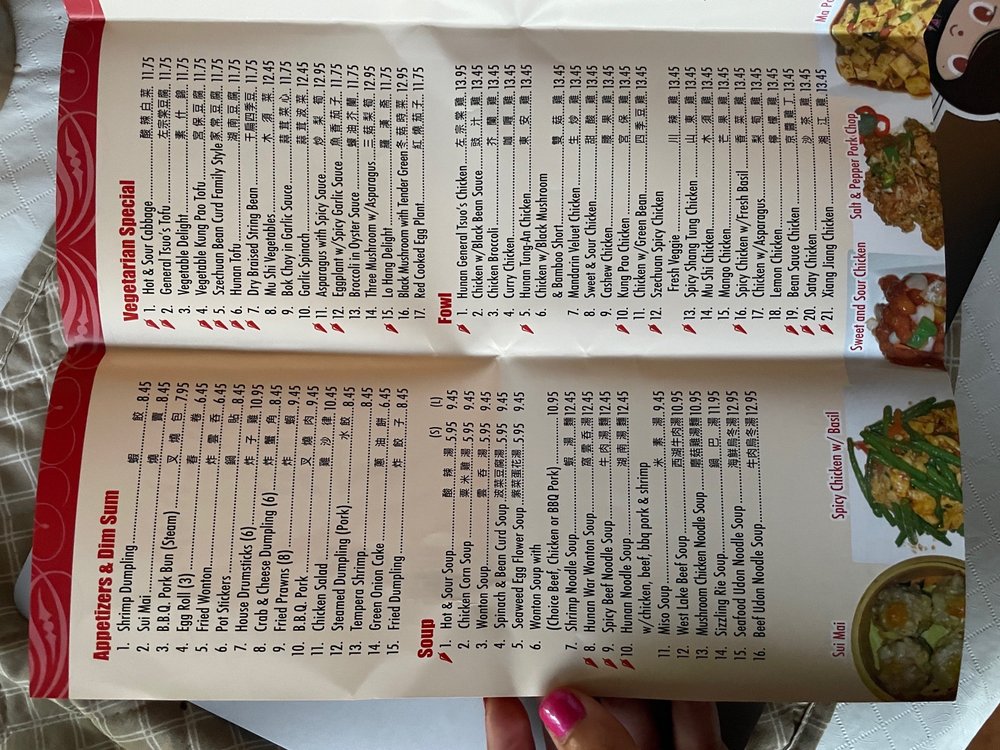 Appetizers & Dim Sum
1. Shrimp Dumpling 蝦餃 8.45
2. Sui Mai 燒賣 8.45
3. B.B.Q. Pork Bun (Steam) 叉燒包 7.95
4. Egg Roll (3) 春卷 6.45
5. Fried Wonton 炸雲吞 6.45
6. Pot Stickers 鍋貼 8.45
7. House Drumsticks (6) 炸子雞 10.95
8. Crab & Cheese Dumpling (6) 炸蟹角 8.45
9. Fried Prawns (8) 炸蝦 9.45
10. B.B.Q. Pork 叉燒肉 9.45
11. Chicken Salad 雞沙律 9.45
12. Steamed Dumpling (Pork) 水餃 10.45
13. Tempera Shrimp 8.45
14. Green Onion Cake 蔥油餅 6.45
15. Fried Dumpling 炸餃子 8.45
Soup (S) (L)
1. Hot & Sour Soup 酸辣湯 5.95 9.45
2. Chicken Corn Soup 粟米雞湯 5.95 9.45
3. Wonton Soup 雲吞湯 5.95 9.45
4. Spinach & Bean Curd Soup 波菜豆腐湯 5.95 9.45
5. Seaweed Egg Flower Soup 紫菜蛋花湯 5.95 9.45
6. Wonton Soup with
(Choice Beef, Chicken or BBQ Pork) 10.95
7. Shrimp Noodle Soup 蝦湯麵 12.45
8. Hunan War Wonton Soup 窩雲吞湯 12.45
9. Spicy Beef Noodle Soup 牛肉湯麵 12.45
10. Hunan Noodle Soup 湖南湯麵 12.45
w/chicken, beef, bbq pork & shrimp
11. Miso Soup 米素湯 9.45
12. West Lake Beef Soup 西湖牛肉湯 10.95
13. Mushroom Chicken Noodle Soup 蘑菇雞湯麵 12.45
14. Sizzling Rice Soup 鍋巴湯 11.95
15. Seafood Udon Noodle Soup 海鮮烏冬湯 12.95
16. Beef Udon Noodle Soup 牛肉烏冬湯 12.95
Vegetarian Special
1. Hot & Sour Cabbage 酸辣白菜 11.75
2. General Tsuo's Tofu 左宗棠豆腐 11.75
3. Vegetable Delight 素什錦 11.75
4. Vegetable Kung Pao Tofu 宮保豆腐 11.75
5. Szechuan Bean Curd Family Style 家常豆腐 11.75
6. Hunan Tofu 湖南豆腐 11.75
7. Dry Braised String Bean 干扁四季豆 11.75
8. Mu Shi Vegetables 木須菜 12.45
9. Bok Choy in Garlic Sauce 蒜茸菜心 11.75
10. Garlic Spinach 蒜茸波菜 12.45
11. Asparagus with Spicy Sauce 炒梨筍 12.95
12. Eggplant w/Spicy Garlic Sauce 魚香茄子 11.75
13. Broccoli in Oyster Sauce 蠔油芥蘭 11.75
14. Three Mushroom w/Asparagus 三菇梨筍 12.95
15. Lo Hang Delight 羅漢齋 11.75
16. Black Mushroom with Tender Green 冬菇時菜 12.95
17. Red Cooked Egg Plant 紅燒茄子 11.75
Fowl
1. Hunan General Tsuo's Chicken 左宗棠雞 13.95
2. Chicken w/Black Bean Sauce 豉汁雞 13.45
3. Chicken Broccoli 芥蘭雞 13.45
4. Curry Chicken 咖喱雞 13.45
5. Hunan Tung-An Chicken 東安雞 13.45
6. Chicken w/Black Mushroom
& Bamboo Short 雙菇雞 13.45
7. Mandarin Velvet Chicken 生炒雞 13.45
8. Sweet & Sour Chicken 甜酸雞 13.45
9. Cashew Chicken 腰果雞 13.45
10. Kung Pao Chicken 宮保雞 13.45
11. Chicken w/Green Bean 四季豆雞 13.45
12. Szechuan Spicy Chicken
Fresh Veggie 川辣雞 13.45
13. Spicy Shang Tung Chicken 山東雞 13.45
14. Mu Shi Chicken 木須雞 13.45
15. Mango Chicken 芒果雞 13.45
16. Spicy Chicken w/Fresh Basil 香菜雞 13.45
17. Chicken w/Asparagus 梨筍雞 13.45
18. Lemon Chicken 檸檬雞 13.45
19. Bean Sauce Chicken 京醬雞丁 13.45
20. Satay Chicken 沙茶雞 13.45
21. Xiang Jiang Chicken 湘江雞 13.45
Sui Mai
Spicy Chicken w/ Basil
Sweet and Sour Chicken
Salt & Pepper Pork Chop